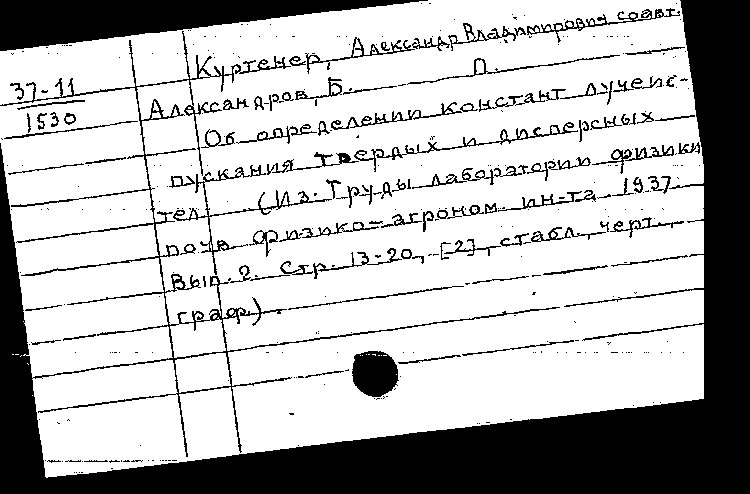 Куртенер, Александр Владимирович соавт.
37-11
1530
Александров, Б. П.
Об определении констант лучеис-
пускания твердых и дисперсных
тел. (Из: Труды лаборатории физики
почв физико-агроном. ин-та. 1937.
Вып. 2. Стр. 13-20, [2], стабл., черт.,
граф.).